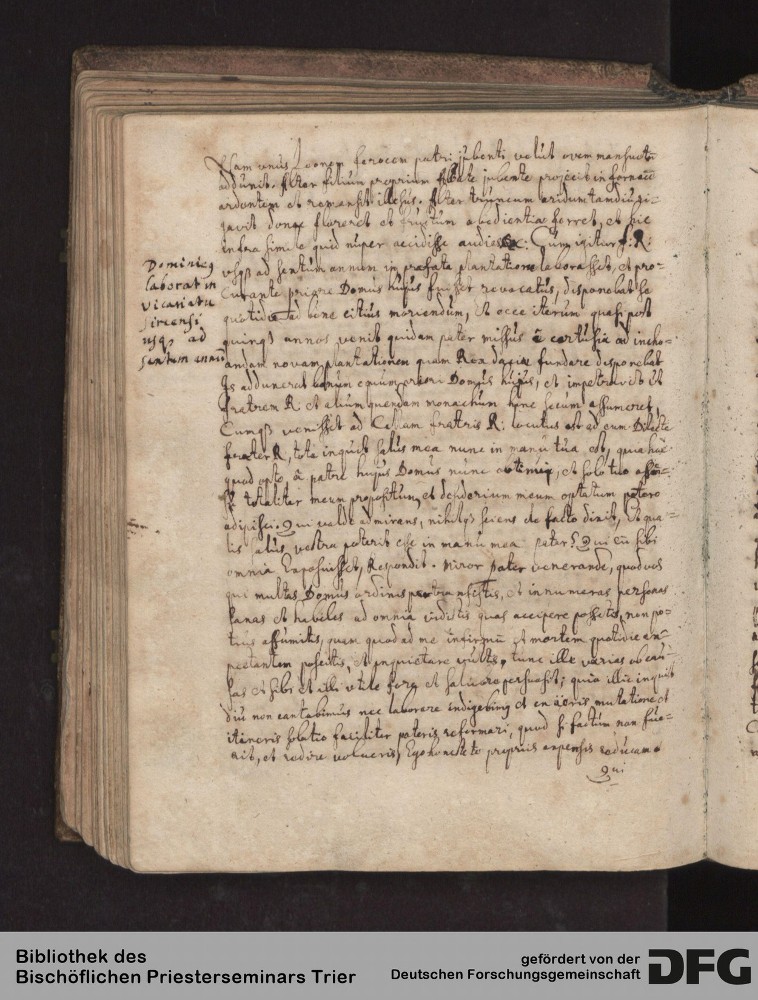 Nam unus Leonem ferocem patri jubenti velut ovem mansuetū
adduxit. Alter filium proprium Abbate jubente projecit in fornacē
ardentem et remansit illesus. Alter truncum aridum tamdiu ri-
gavit donec floreret et fructum obedientiæ ferret, et hic
infra simile quid nuper accidisse audies. Cum igitur f: R:
usqȝ ad sextum annum in præfata plantatione laborasset, et pro-
curante priore Domus hujus fuisset revocatus, disponebat se
quotidie ad bene citius moriendum, Et ecce iterum quasi post
quinqȝ annos venit quidam pater missus è cartusia ad incho-
andam novam plantationem quam Rex daciæ fundare disponebat
adduxerat priorem Domus hujus, et impetravit ut
fratrem R: et alium quendam monachum hinc secum assumeret,
Cumqȝ venisset ad Cellam fratris R: locutus est ad eum. Dilecte
frater R, tota inquit salus mea nunc in manu tua est, quia hoc
quod opto, à patre hujus Domus nunc obtinui, et solo tuo
totaliter meum propositum, et desiderium meum optatum potero
adipisci. Qui valde admirans, nihilqȝ sciens de facto dixit, Et qua-
lis salus vestra poterit esse in manu mea pater? Qui cū sibi
omnia Exposuisset, Respondit. Miror pater venerande, quod vos
qui multas Domus ordinis pertransistis, et innumeras personas
sanas et habiles ad omnia vidistis quas accipere possetis, non po-
tius assumitis, quam quod ad me infirmū et mortem quotidie ex-
pectantem poscitis, et inquietare vultis, tunc ille varias ob cau-
sas et sibi et illi utile fore et salutare persuasit; quia illic inquit
diu non cantabimus nec laborare indigebimȝ et ex aëris mutatione et
itineris solatio faciliter poteris reformari, quod si factum non fue-
rit, et redire volueris, Ego honeste te propriis expensis reducam.
Qui
Dominicȝ
laborat in
vicariatu
sircensi
usqȝ ad
sextum annū
Bibliothek des
Bischöflichen Priesterseminars Trier
gefördert von der
Deutschen Forschungsgemeinschaft
DFG